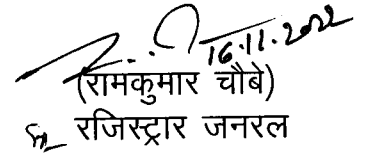 16.11.2022
(रामकुमार चौबे)
रजिस्ट्रार जनरल